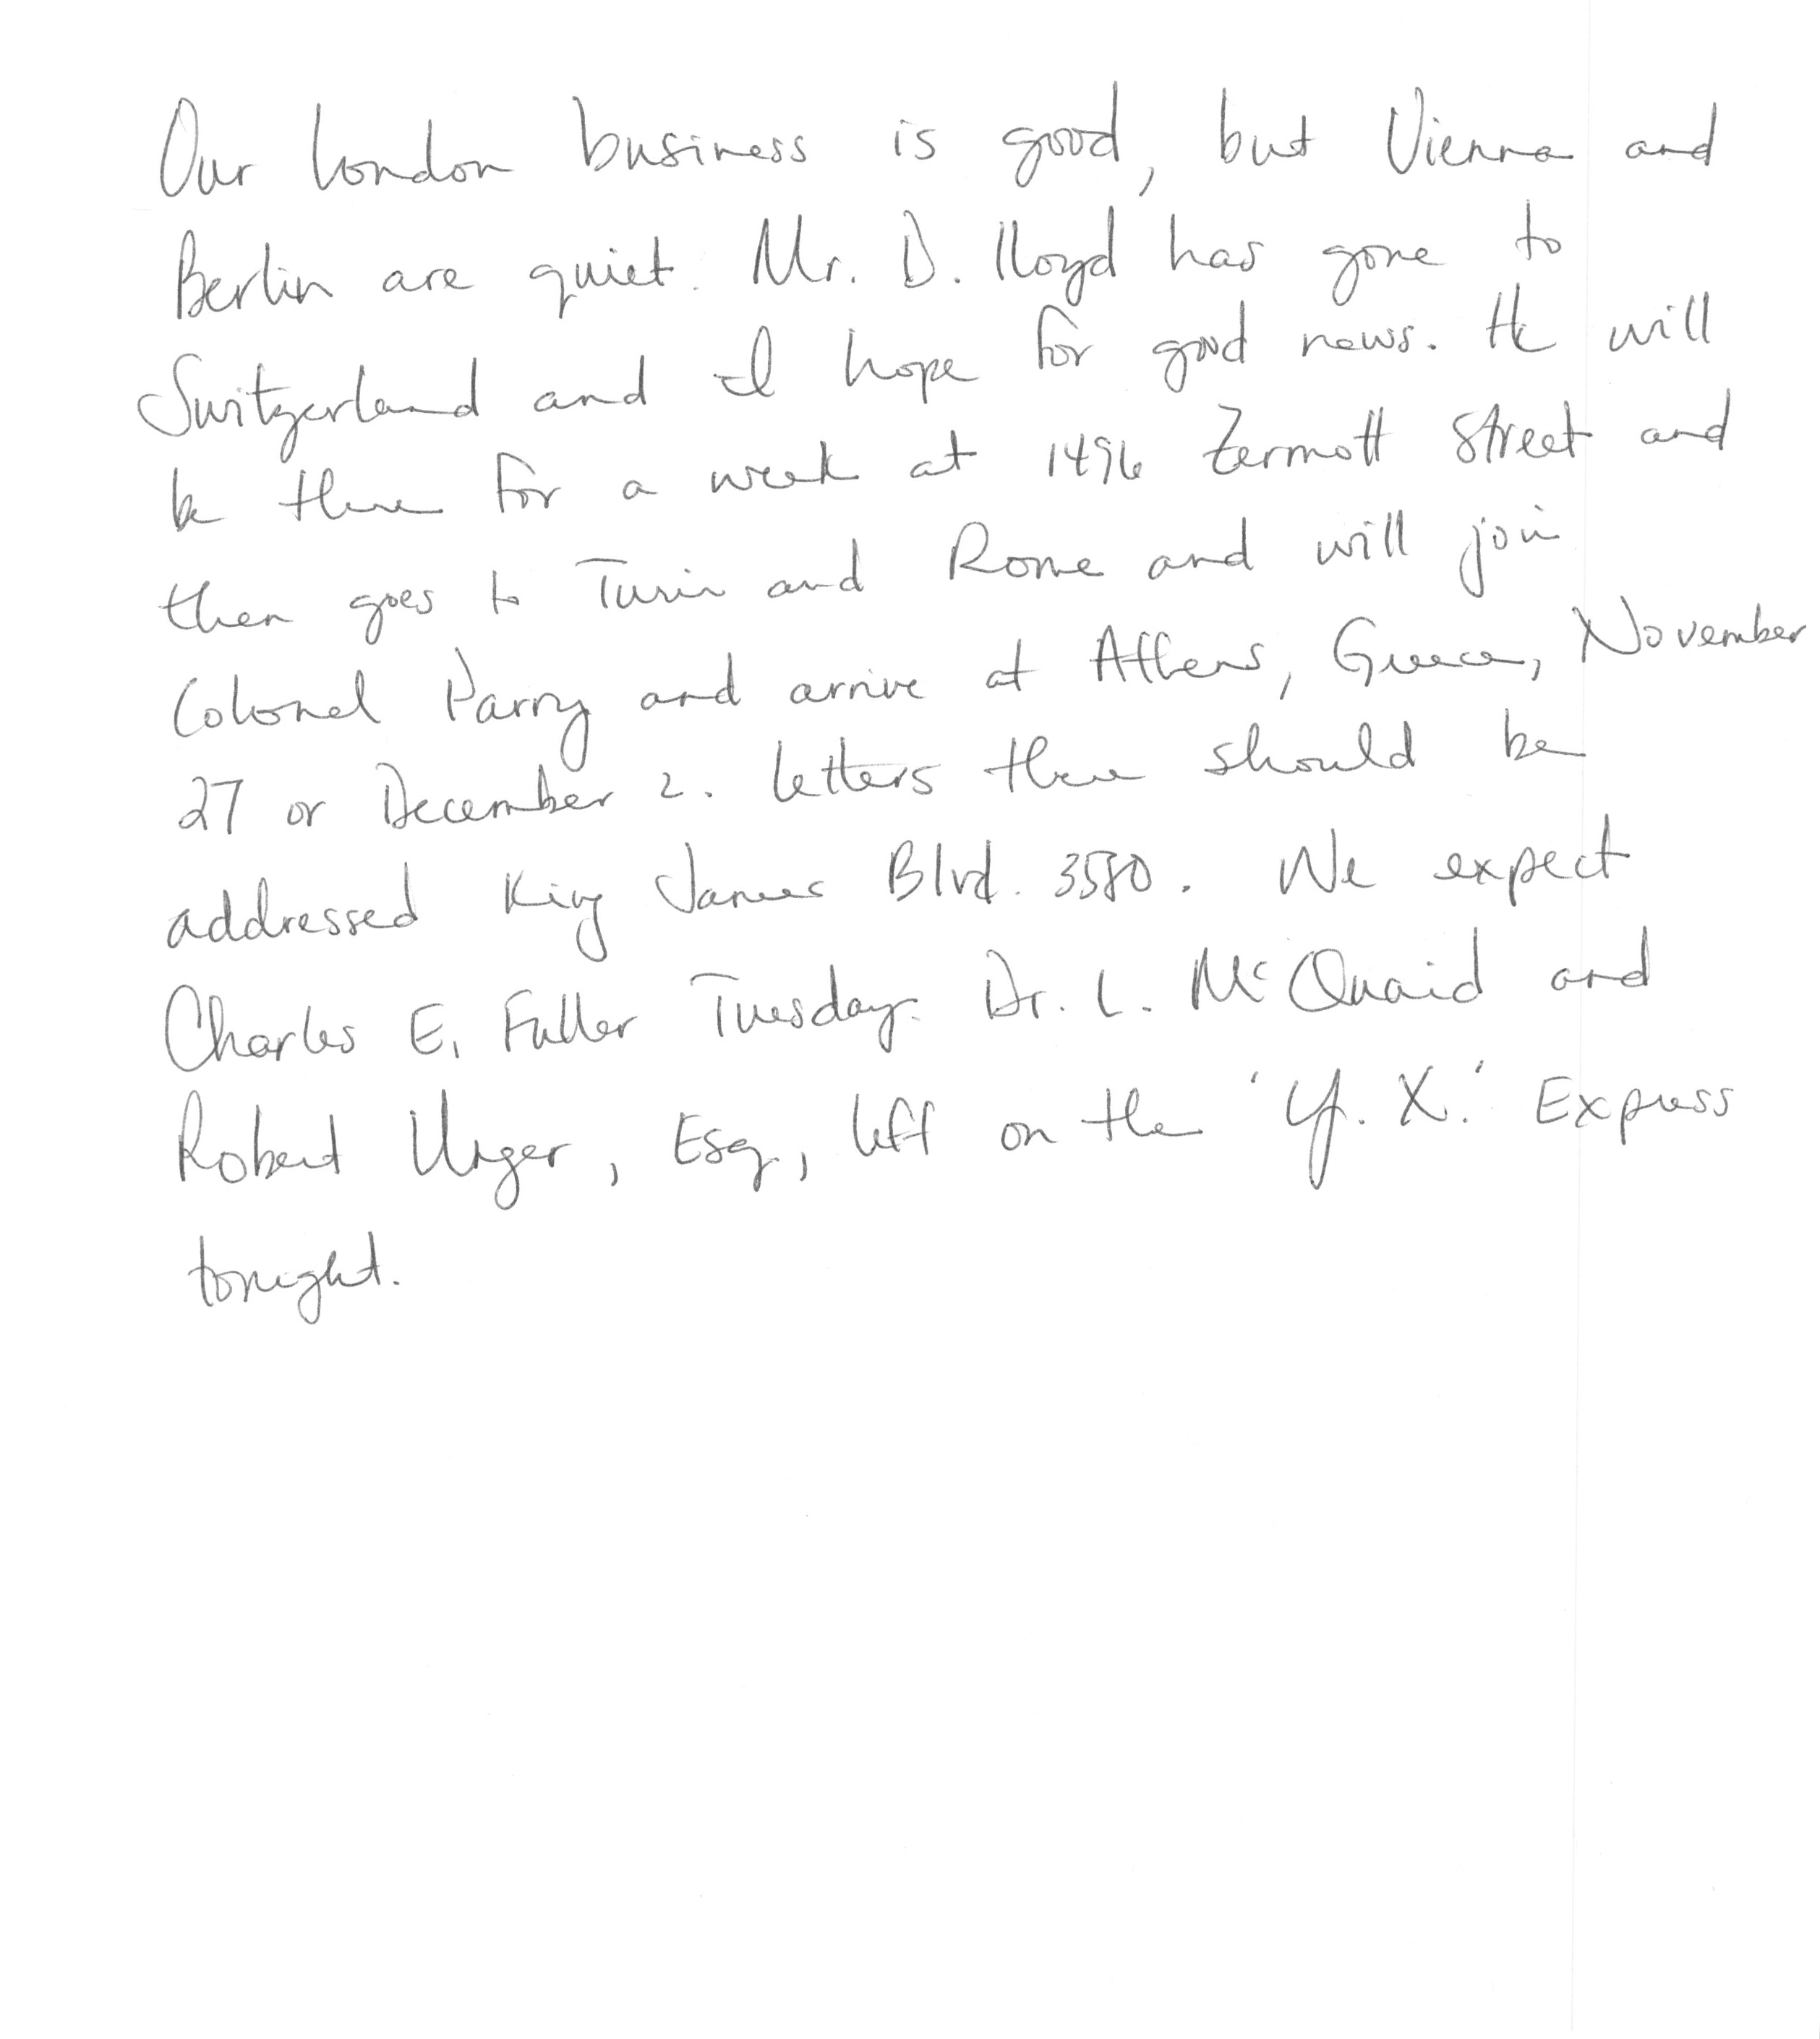 Our London business is good, but Vienna and
Berlin are quiet. Mr. D. Lloyd has gone to
Switzerland and I hope for good news. He will
be there for a week at 1496 Zermott Street and
then goes to Turin and Rome and will join
Colonel Parry and arrive at Athens, Greece, November
27 or December 2. Letters there should be
addressed King James Blvd. 3580. We expect
Charles E. Fuller Tuesday. Dr. L. McQuaid and
Robert Unger, Esq., left on the 'Y. X.' Express
tonight.